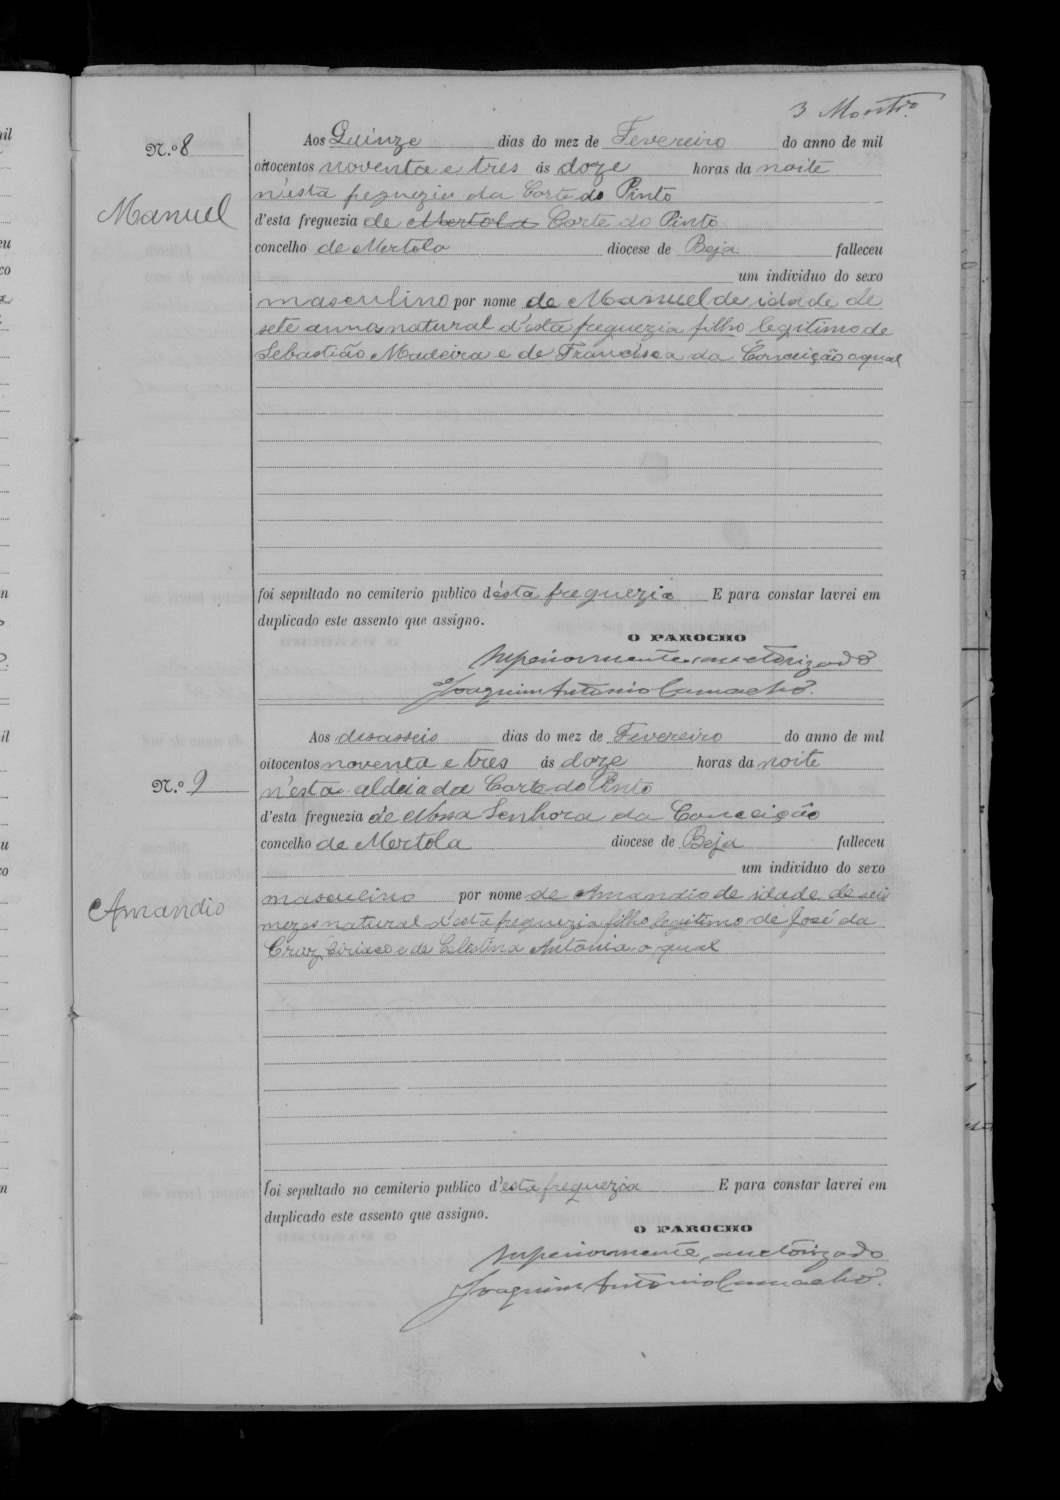 3
N.º 8
Manuel
Aos Quinze dias do mez de Fevereiro do anno de mil
oitocentos noventa e tres ás doze horas da noite
n'esta freguezia da Corte do Pinto
d'esta freguezia de Mertola Corte do Pinto
concelho de Mertola diocese de Beja falleceu
um individuo do sexo
masculino por nome de Manuel de idade de
sete annos natural d'esta freguezia filho legitimo de
Sebastião Madeira e de Francisca da Conceição o qual
foi sepultado no cemiterio publico d'ésta freguezia E para constar lavrei em
duplicado este assento que assigno.
O PAROCHO
Superiormente auctorizado
Joaquim Antonio Camacho.
N.º 9
Amandio
Aos desasseis dias do mez de Fevereiro do anno de mil
oitocentos noventa e tres ás doze horas da noite
n'esta aldeia da Corte do Pinto
d'esta freguezia de Nossa Senhora da Conceição
concelho de Mertola diocese de Beja falleceu
um individuo do sexo
masculino por nome de Amandio de idade de seis
mezes natural d'esta freguezia filho legitimo de José da
Cruz e de Celestina Antonia o qual
foi sepultado no cemiterio publico d'esta freguezia E para constar lavrei em
duplicado este assento que assigno.
O PAROCHO
Superiormente auctorizado
Joaquim Antonio Camacho.